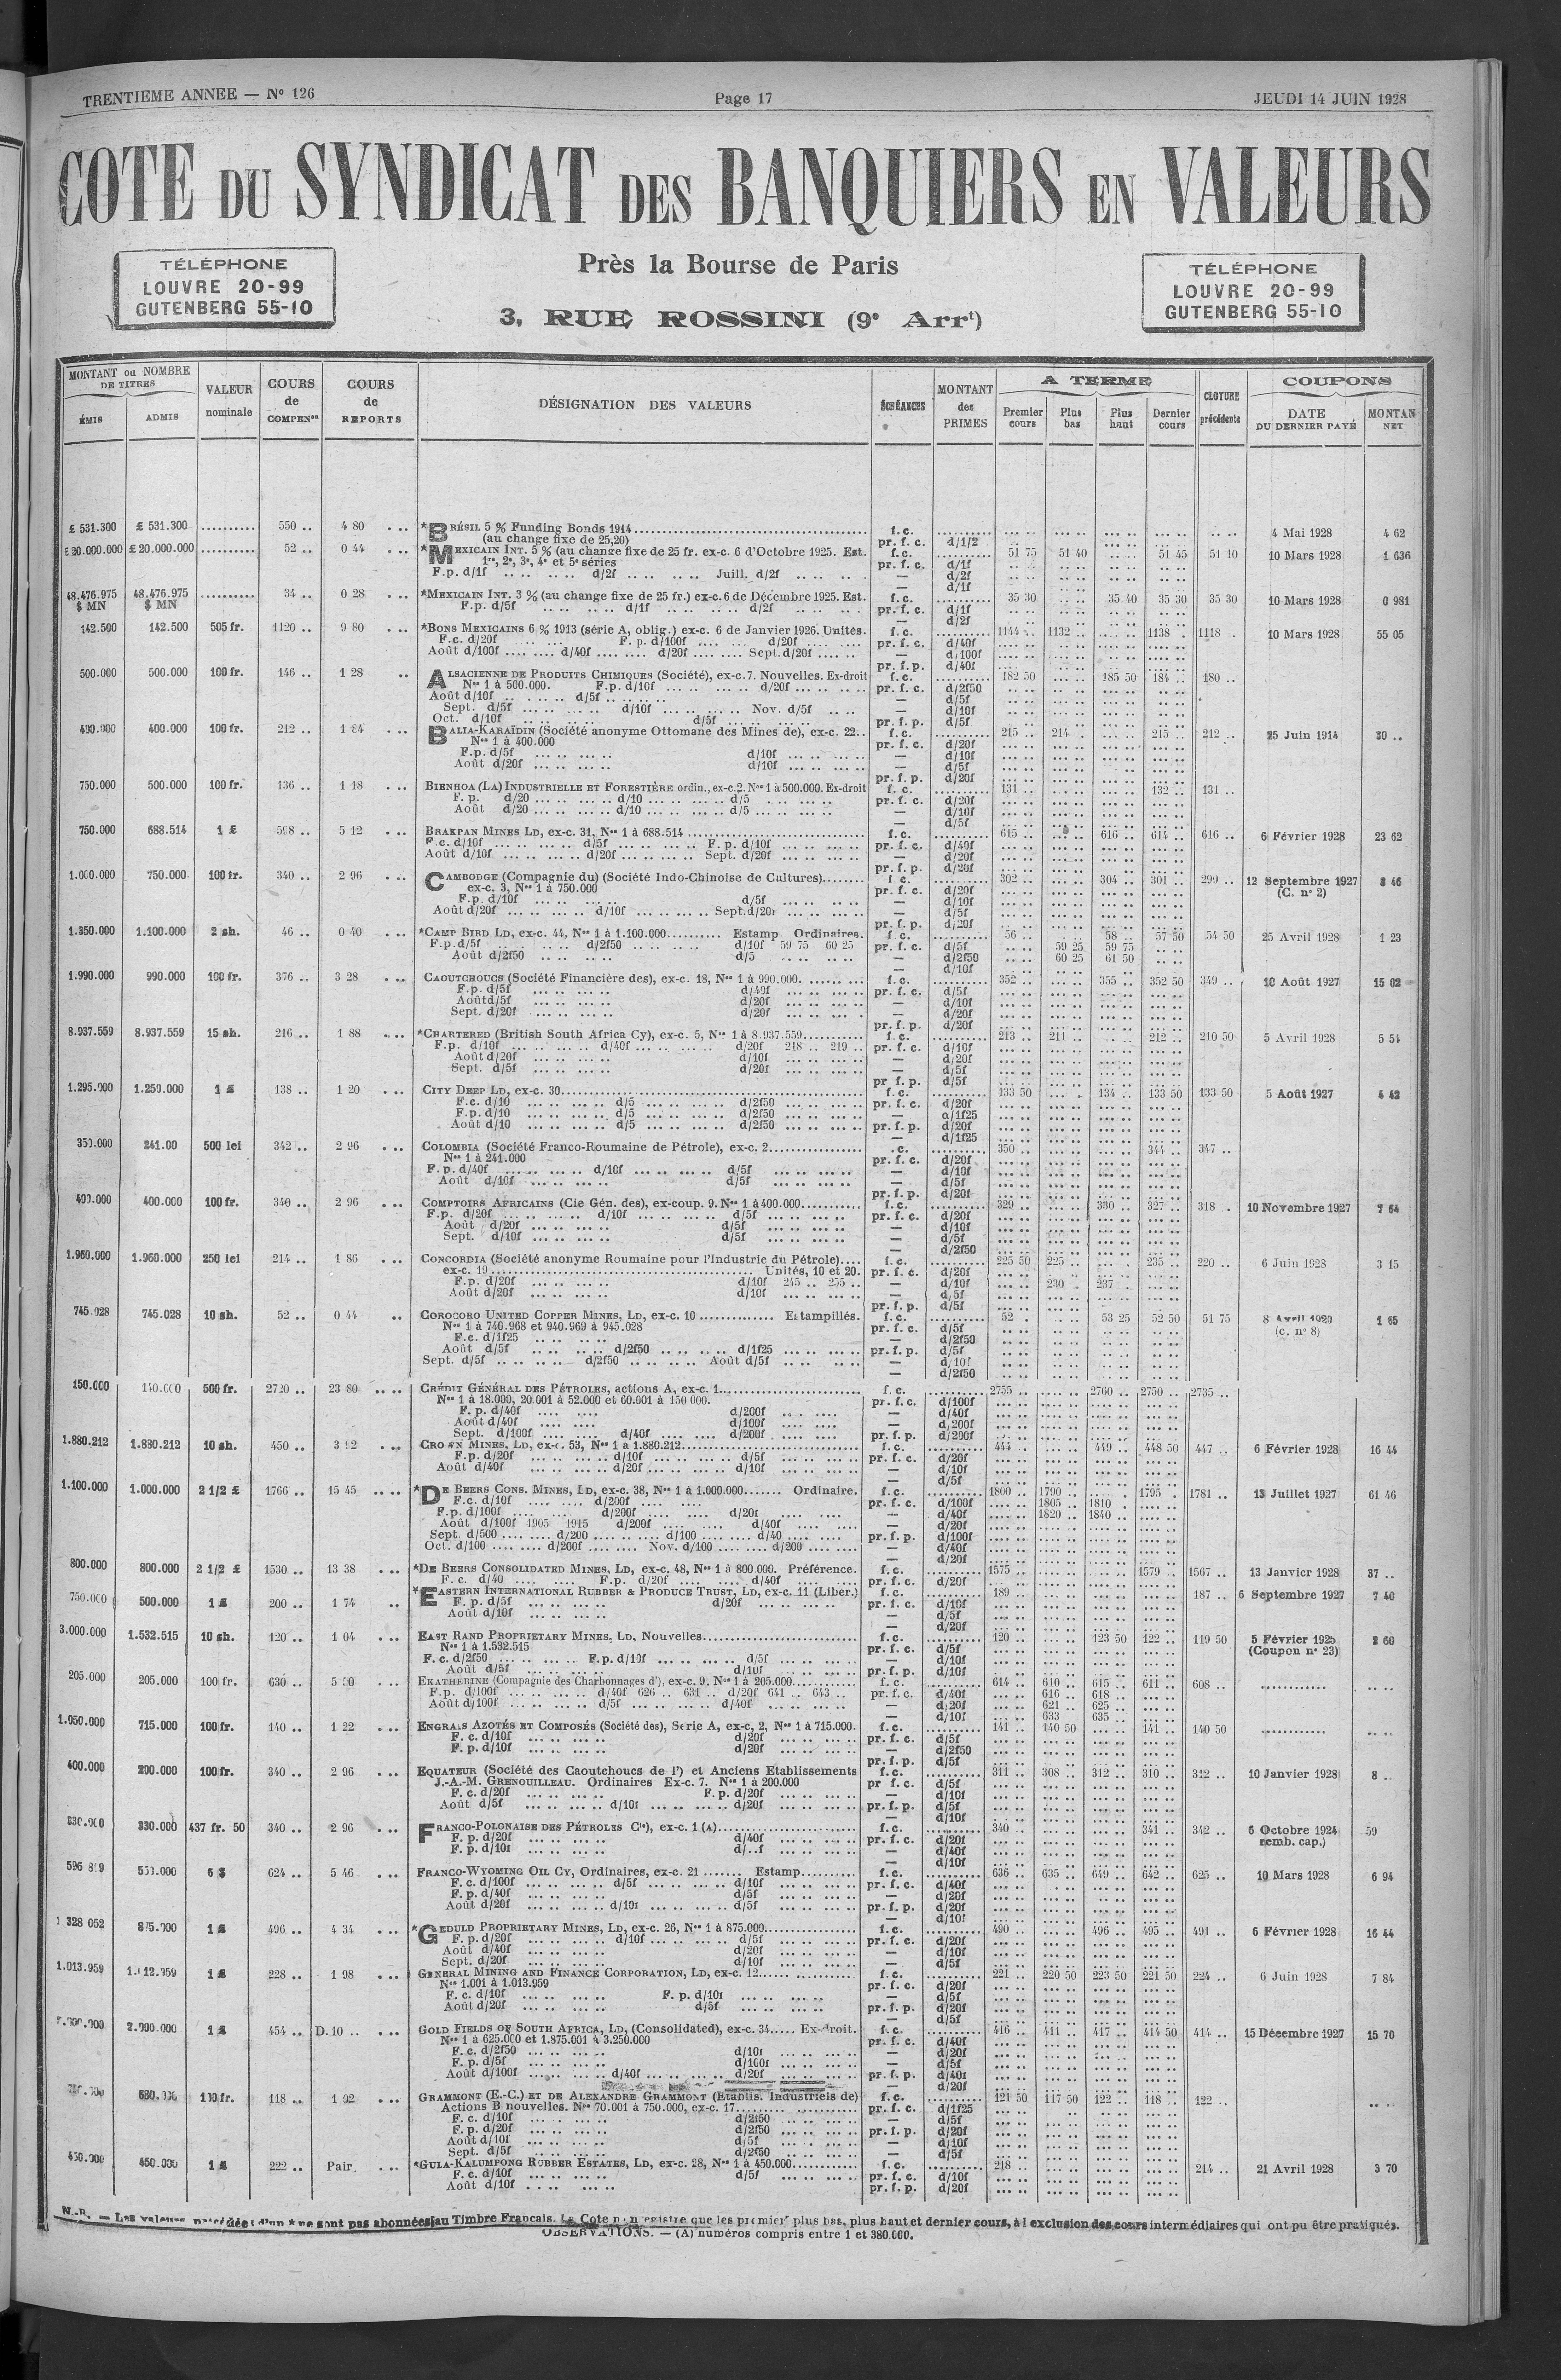 TRENTIEME ANNEE — N° 126 Page 17 JEUDI 14 JUIN 1928
COTE DU SYNDICAT DES BANQUIERS EN VALEURS
TÉLÉPHONE
LOUVRE 20-99
GUTENBERG 55-10
Près la Bourse de Paris
3, RUE ROSSINI (9e Arrt)
TÉLÉPHONE
LOUVRE 20-99
GUTENBERG 55-10
MONTANT ou NOMBRE DE TITRES
ÉMIS ADMIS
VALEUR nominale
COURS de COMPENon
COURS de REPORTS
DÉSIGNATION DES VALEURS
ÉCHÉANCES
MONTANT des PRIMES
A TERME
Premier cours Plus bas Plus haut Dernier cours
CLOTURE précédente
COUPONS
DATE DU DERNIER PAYÉ
MONTAN NET
£ 531.300 £ 531.300 .......... 550 .. 4 80 *BRÉSIL 5 % Funding Bonds 1914 f.c. 4 Mai 1928 4 62
(au change fixe de 25,20) pr. f. c. d/1/2
£ 20.000.000 £ 20.000.000 .......... 52 .. 0 44 *MEXICAIN INT. 5 % (au change fixe de 25 fr. ex-c. 6 d'Octobre 1925. Est. f.c. 51 75 51 40 51 45 51 10 10 Mars 1928 1 636
1re, 2e, 3e, 4e et 5e séries pr. f. c. d/1f
F.p. d/1f d/2f Juill. d/2f — d/2f
— d/1f
48.476.975 $ MN 48.476.975 $ MN .......... 34 .. 0 28 *MEXICAIN INT. 3 % (au change fixe de 25 fr.) ex-c. 6 de Décembre 1925. Est. f.c. 35 30 35 40 35 30 35 30 10 Mars 1928 0 981
F.p. d/5f d/1f d/2f pr. f. c. d/1f
— d/2f
142.500 142.500 505 fr. 1120 .. 9 80 *BONS MEXICAINS 6 % 1913 (série A, oblig.) ex-c. 6 de Janvier 1926. Unités. f.c. 1144 .. 1132 .. 1138 . 1118 . 10 Mars 1928 55 05
F.c. d/20f F. p. d/100f d/20f pr. f. c. d/40f
Août d/100f d/40f d/20f Sept. d/20f — d/100f
pr. f. p. d/40f
500.000 500.000 100 fr. 146 .. 1 28 ALSACIENNE DE PRODUITS CHIMIQUES (Société), ex-c. 7. Nouvelles. Ex-droit f.c. 182 50 185 50 184 .. 180 ..
Nos 1 à 500.000. F.p. d/10f d/20f pr. f. c. d/2f50
Août d/10f d/5f — d/5f
Sept. d/5f d/10f Nov. d/5f — d/10f
Oct. d/10f d/5f pr. f. p. d/5f
400.000 400.000 100 fr. 212 .. 1 84 BALIA-KARAÏDIN (Société anonyme Ottomane des Mines de), ex-c. 22.. f.c. 215 .. 214 .. 215 .. 212 .. 25 Juin 1914 30 ..
Nos 1 à 400.000 pr. f. c. d/20f
F.p. d/5f d/10f — d/10f
Août d/20f d/10f — d/5f
pr. f. p. d/20f
750.000 500.000 100 fr. 136 .. 1 18 BIENHOA (LA) INDUSTRIELLE ET FORESTIÈRE ordin., ex-c.2. Nos 1 à 500.000. Ex-droit f.c. 131 .. 132 .. 131 ..
F. p. d/20 d/10 d/5 pr. f. c. d/20f
Août d/20 d/10 d/5 — d/10f
— d/5f
750.000 688.514 1 £ 598 .. 5 12 BRAKPAN MINES LD, ex-c. 31, Nos 1 à 688.514 f.c. 615 .. 616 .. 614 .. 616 .. 6 Février 1928 23 62
F.c. d/10f d/5f F. p. d/10f pr. f. c. d/40f
Août d/10f d/20f Sept. d/20f — d/20f
pr. f. p. d/20f
1.000.000 750.000 100 fr. 340 .. 2 96 CAMBODGE (Compagnie du) (Société Indo-Chinoise de Cultures) f.c. 302 .. 304 .. 301 .. 299 .. 12 Septembre 1927 (C. n° 2) 8 46
ex-c. 3, Nos 1 à 750.000 pr. f. c. d/20f
F.p. d/10f d/5f — d/10f
Août d/20f d/10f Sept. d/20f — d/5f
pr. f. p. d/20f
1.350.000 1.100.000 2 sh. 46 .. 0 40 *CAMP BIRD LD, ex-c. 44, Nos 1 à 1.100.000 Estamp Ordinaires. f.c. 56 .. 58 .. 57 50 54 50 25 Avril 1928 1 23
F.p. d/5f d/2f50 d/10f 59 75 60 25 pr. f. c. d/5f 59 25 59 75
Août d/2f50 d/5 — d/2f50 60 25 61 50
— d/10f
1.990.000 990.000 100 fr. 376 .. 3 28 CAOUTCHOUCS (Société Financière des), ex-c. 18, Nos 1 à 990.000. f.c. 352 .. 355 .. 352 50 349 .. 10 Août 1927 15 02
F.p. d/5f d/40f pr. f. c. d/5f
Août d/5f d/20f — d/10f
Sept. d/20f d/20f — d/20f
pr. f. p. d/20f
8.937.559 8.937.559 15 sh. 216 .. 1 88 *CHARTERED (British South Africa Cy), ex-c. 5, Nos 1 à 8.937.559 f.c. 213 .. 211 .. 212 .. 210 50 5 Avril 1928 5 54
F.p. d/10f d/40f d/20f 218 .. 219 .. pr. f. c. d/10f
Août d/20f d/10f — d/20f
Sept. d/5f d/20f — d/5f
pr f. p. d/5f
1.295.000 1.250.000 1 £ 138 .. 1 20 CITY DEEP LD, ex-c. 30 f.c. 133 50 134 .. 133 50 133 50 5 Août 1927 4 42
F.c. d/10 d/5 d/2f50 pr. f. c. d/20f
F.p. d/10 d/5 d/2f50 — d/1f25
Août d/10 d/5 d/2f50 pr. f. p. d/20f
— d/1f25
350.000 241.00 500 lei 342 .. 2 96 COLOMBIA (Société Franco-Roumaine de Pétrole), ex-c. 2 .c. 350 .. 344 .. 347 ..
Nos 1 à 241.000 pr. f. c. d/20f
F.p. d/40f d/10f d/5f — d/10f
Août d/10f d/5f — d/5f
pr. f. p. d/20f
400.000 400.000 100 fr. 340 .. 2 96 COMPTOIRS AFRICAINS (Cie Gén. des), ex-coup. 9. Nos 1 à 400.000 f.c. 329 .. 330 .. 327 .. 318 . 10 Novembre 1927 7 64
F.p. d/20f d/10f d/5f pr. f. c. d/20f
Août d/20f d/5f — d/10f
Sept. d/10f d/5f — d/5f
— d/2f50
1.960.000 1.960.000 250 lei 214 .. 1 86 CONCORDIA (Société anonyme Roumaine pour l'Industrie du Pétrole) f.c. 225 50 225 .. 235 .. 220 .. 6 Juin 1928 3 15
ex-c. 19 Unités, 10 et 20. pr. f. c. d/20f
F.p. d/20f d/10f 245 .. 255 .. — d/10f 230 . 237
Août d/20f d/10f — d/5f
pr. f. p. d/5f
745.028 745.028 10 sh. 52 .. 0 44 COROCORO UNITED COPPER MINES, LD, ex-c. 10 Estampillés. f.c. 52 . 53 25 52 50 51 75 8 Avril 1920 (c. n° 8) 1 65
Nos 1 à 740.968 et 940.969 à 945.028 pr. f. c. d/5f
F.c. d/1f25 — d/2f50
Août d/5f d/2f50 d/1f25 pr. f. p. d/5f
Sept. d/5f d/2f50 Août d/5f — d/10f
— d/2f50
150.000 140.000 500 fr. 2720 .. 23 80 CRÉDIT GÉNÉRAL DES PÉTROLES, actions A, ex-c. 1 f.c. 2755 .. 2760 .. 2750 .. 2735 ..
Nos 1 à 18.000, 20.001 à 52.000 et 60.001 à 150 000. pr. f. c. d/100f
F. p. d/40f d/200f — d/40f
Août d/40f d/100f — d/200f
Sept. d/100f d/40f d/200f pr. f. p. d/200f
1.880.212 1.880.212 10 sh. 450 .. 3 92 CROWN MINES, LD, ex-c. 53, Nos 1 à 1.880.212 f.c. 444 .. 449 .. 448 50 447 .. 6 Février 1928 16 44
F.p. d/20f d/10f d/5f pr. f. c. d/20f
Août d/40f d/20f d/10f — d/10f
— d/5f
1.100.000 1.000.000 2 1/2 £ 1766 .. 15 45 *DE BEERS CONS. MINES, LD, ex-c. 38, Nos 1 à 1.000.000 Ordinaire. f.c. 1800 .. 1790 .. 1795 .. 1781 .. 13 Juillet 1927 61 46
F.c. d/10f d/200f pr. f. c. d/100f 1805 .. 1810
F.p. d/100f d/200f d/20f — d/40f 1820 .. 1840 ..
Août d/100f 1905 1915 d/200f d/40f — d/20f
Sept. d/500 d/200 d/100 d/40 pr. f. p. d/100f
Oct. d/100 d/200f Nov. d/100 d/200 — d/40f
— d/20f
800.000 800.000 2 1/2 £ 1530 .. 13 38 *DE BEERS CONSOLIDATED MINES, LD, ex-c. 48, Nos 1 à 800.000. Préférence. f.c. 1575 .. 1579 .. 1567 .. 13 Janvier 1928 37 ..
F. c. d/40 F.p. d/20f d/40f pr. f. c. d/20f
750.000 500.000 1 £ 200 .. 1 74 *EASTERN INTERNATIONAL RUBBER & PRODUCE TRUST, LD, ex-c. 11 (Liber.) f.c. 189 .. 187 .. 6 Septembre 1927 7 40
F. p. d/5f d/20f pr. f. c. d/10f
Août d/10f — d/5f
— d/20f
3.000.000 1.532.515 10 sh. 120 .. 1 04 EAST RAND PROPRIETARY MINES, LD, Nouvelles f.c. 120 .. 123 50 122 .. 119 50 5 Février 1925 (Coupon n° 23) 2 60
Nos 1 à 1.532.515 pr. f. c. d/5f
F. c. d/2f50 F.p. d/10f d/5f — d/10f
Août d/5f d/10f pr. f. p. d/10f
205.000 205.000 100 fr. 630 .. 5 50 EKATHERINE (Compagnie des Charbonnages d'), ex-c. 9. Nos 1 à 205.000 f.c. 614 .. 610 .. 615 .. 611 .. 608 ..
F.p. d/100f d/40f 626 .. 631 .. d/20f 641 .. 643 .. pr. f. c. d/40f 616 .. 618 ..
Août d/100f d/5f d/40f — d/20f 621 .. 625 ..
— d/10f 633 635 ..
1.050.000 715.000 100 fr. 140 .. 1 22 ENGRAIS AZOTÉS ET COMPOSÉS (Société des), Serie A, ex-c, 2, Nos 1 à 715.000. f.c. 141 .. 140 50 141 .. 140 50
F. c. d/10f d/20f pr. f. c. d/5f
F. p. d/10f d/20f — d/2f50
pr. f. p. d/5f
400.000 200.000 100 fr. 340 .. 2 96 EQUATEUR (Société des Caoutchoucs de l') et Anciens Etablissements f.c. 311 .. 308 .. 312 .. 310 .. 312 .. 10 Janvier 1928 8 ..
J.-A.-M. GRENOUILLEAU. Ordinaires Ex-c. 7. Nos 1 à 200.000 pr f. c. d/5f
F. c. d/20f F. p. d/20f — d/10f
Août d/5f d/10f d/20f pr. f. p. d/5f
— d/10f
330.000 330.000 437 fr. 50 340 .. 2 96 FRANCO-POLONAISE DES PÉTROLES Cie), ex-c. 1 (A) f.c. 340 .. 341 .. 342 .. 6 Octobre 1924 remb. cap.) 59
F. p. d/20f d/40f pr. f. c. d/20f
F. p. d/10f d/..f — d/40f
— d/10f
550.000 6 $ 624 .. 5 46 FRANCO-WYOMING OIL CY, Ordinaires, ex-c. 21 Estamp f.c. 636 .. 635 .. 649 .. 642 .. 625 .. 10 Mars 1928 6 94
F. c. d/100f d/5f d/10f pr. f. c. d/40f
F. p. d/40f d/5f — d/20f
Août d/20f d/10f d/5f pr. f. p. d/20f
— d/10f
1 328 052 875.000 1 £ 496 .. 4 34 *GEDULD PROPRIETARY MINES, LD, ex-c. 26, Nos 1 à 875.000 f.c. 490 .. 496 .. 495 .. 491 .. 6 Février 1928 16 44
F. p. d/20f d/10f d/5f pr. f. c. d/20f
Août d/40f d/20f — d/10f
Sept. d/20f d/10f — d/5f
1.013.959 1.012.959 1 £ 228 .. 1 98 GENERAL MINING AND FINANCE CORPORATION, LD, ex-c. 12 f.c. 221 .. 220 50 223 50 221 50 224 .. 6 Juin 1928 7 84
Nos 1.001 à 1.013.959 pr. f. c. d/20f
F. c. d/10f F. p. d/10f — d/5f
Août d/20f d/5f pr. f. p. d/20f
— d/5f
2.000.000 1 £ 454 .. D.10 .. GOLD FIELDS OF SOUTH AFRICA, LD, (Consolidated), ex-c. 34 Ex-droit. f.c. 416 .. 411 .. 417 .. 414 50 414 .. 15 Décembre 1927 15 70
Nos 1 à 625.000 et 1.875.001 à 3.250.000 pr. f. c. d/40f
F. c. d/2f50 d/10f — d/20f
F. p. d/5f d/100f — d/5f
Août d/100f d/40f d/20f pr. f. p. d/40f
— d/20f
680.000 100 fr. 118 .. 1 02 GRAMMONT (E.-C.) ET DE ALEXANDRE GRAMMONT (Etablis. Industriels de) f.c. 121 50 117 50 122 .. 118 .. 122 ..
Actions B nouvelles. Nos 70.001 à 750.000, ex-c. 17 pr. f. c. d/1f25
F. c. d/10f d/2f50 — d/5f
F. p. d/20f d/2f50 pr. f. p. d/20f
Août d/10f d/5f — d/10f
Sept. d/5f d/2f50 — d/5f
450.000 450.000 1 £ 222 .. Pair. *GULA-KALUMPONG RUBBER ESTATES, LD, ex-c. 28, Nos 1 à 450.000 f.c. 218 .. 214 .. 21 Avril 1928 3 70
F. c. d/10f d/5f pr. f. c. d/10f
Août d/10f pr. f. p. d/20f
N.-B. — Les valeurs précédées d'un * ne sont pas abonnées au Timbre Français. La Cote n'enregistre que les premier plus bas, plus haut et dernier cours, à l exclusion des cours intermédiaires qui ont pu être pratiqués.
OBSERVATIONS. — (A) numéros compris entre 1 et 380.000.